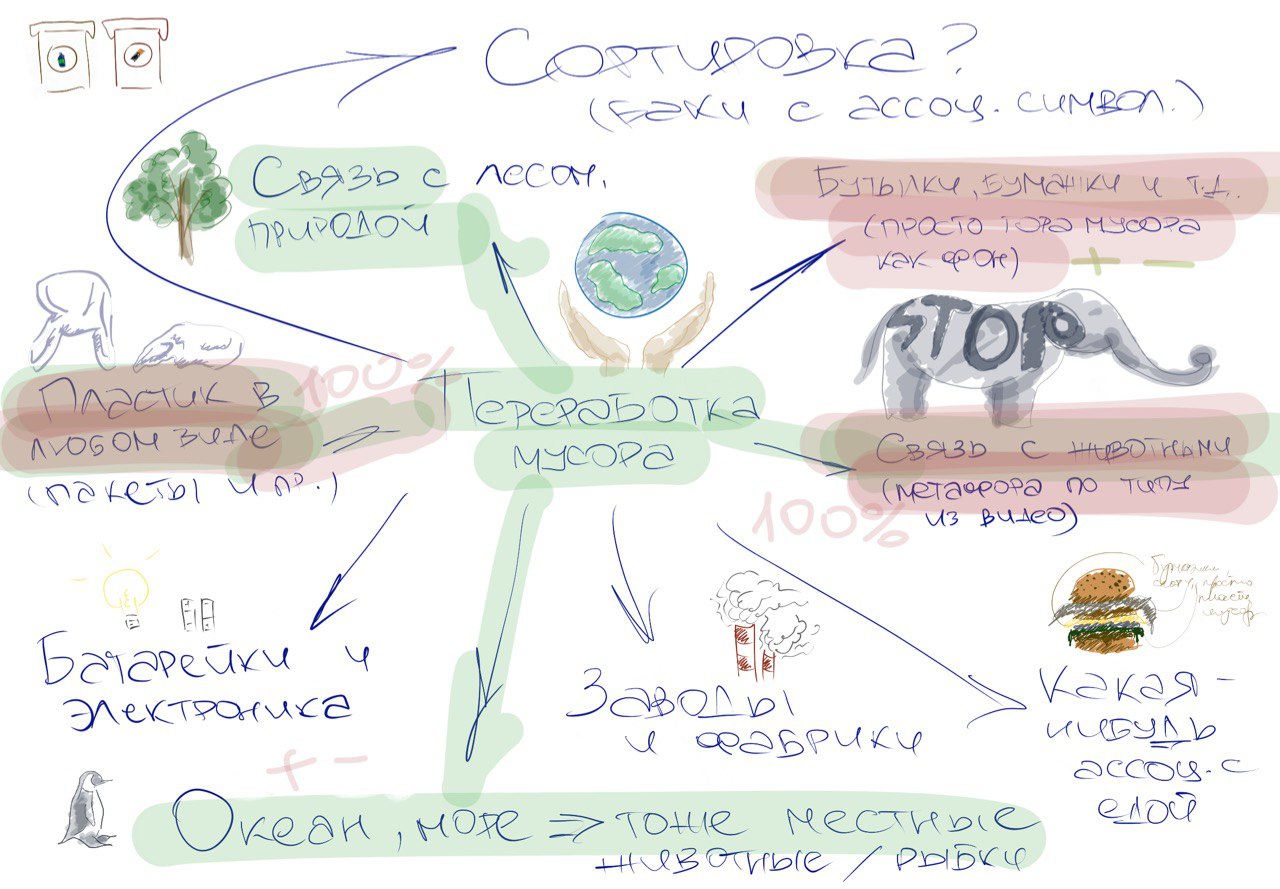 Сортировка?
(баки с ассоц. символ.)
Связь с лесом,
природой
Бутылки, бумажки и т.д.
(просто гора мусора
как фон)
+ −
STOP
100%
Пластик в
любом виде
(пакеты и пр.)
Переработка
мусора
Связь с животными
(метафора по типу
из видео)
100%
Батарейки и
электроника
Заводы
и фабрики
просто
мусор
Какая-
нибудь
ассоц. с
едой
+ −
Океан, море ⇒ тоже местные
животные / рыбки